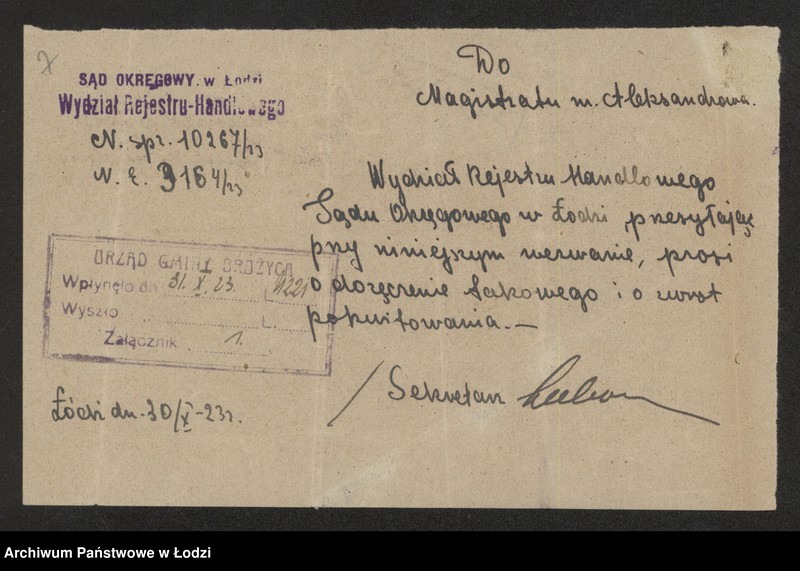 SĄD OKRĘGOWY w Łodzi
Wydział Rejestru-Handlowego
N. spr. 10267/23
N. E. 3164/23
Do
Magistratu m. Aleksandrowa.
Wydział Rejestru Handlowego
Sądu Okręgowego w Łodzi, przesyłając
przy niniejszym wezwanie, prosi
o doręczenie takowego i o zwrot
pokwitowania. —
URZĄD GMINY BRÓŻYCA
Wpłynęło dn. 31. X. 23. L. 1221
Wyszło L.
Załącznik 1.
Łódź dn. 30/X - 23 r.
/ Sekretarz
Archiwum Państwowe w Łodzi